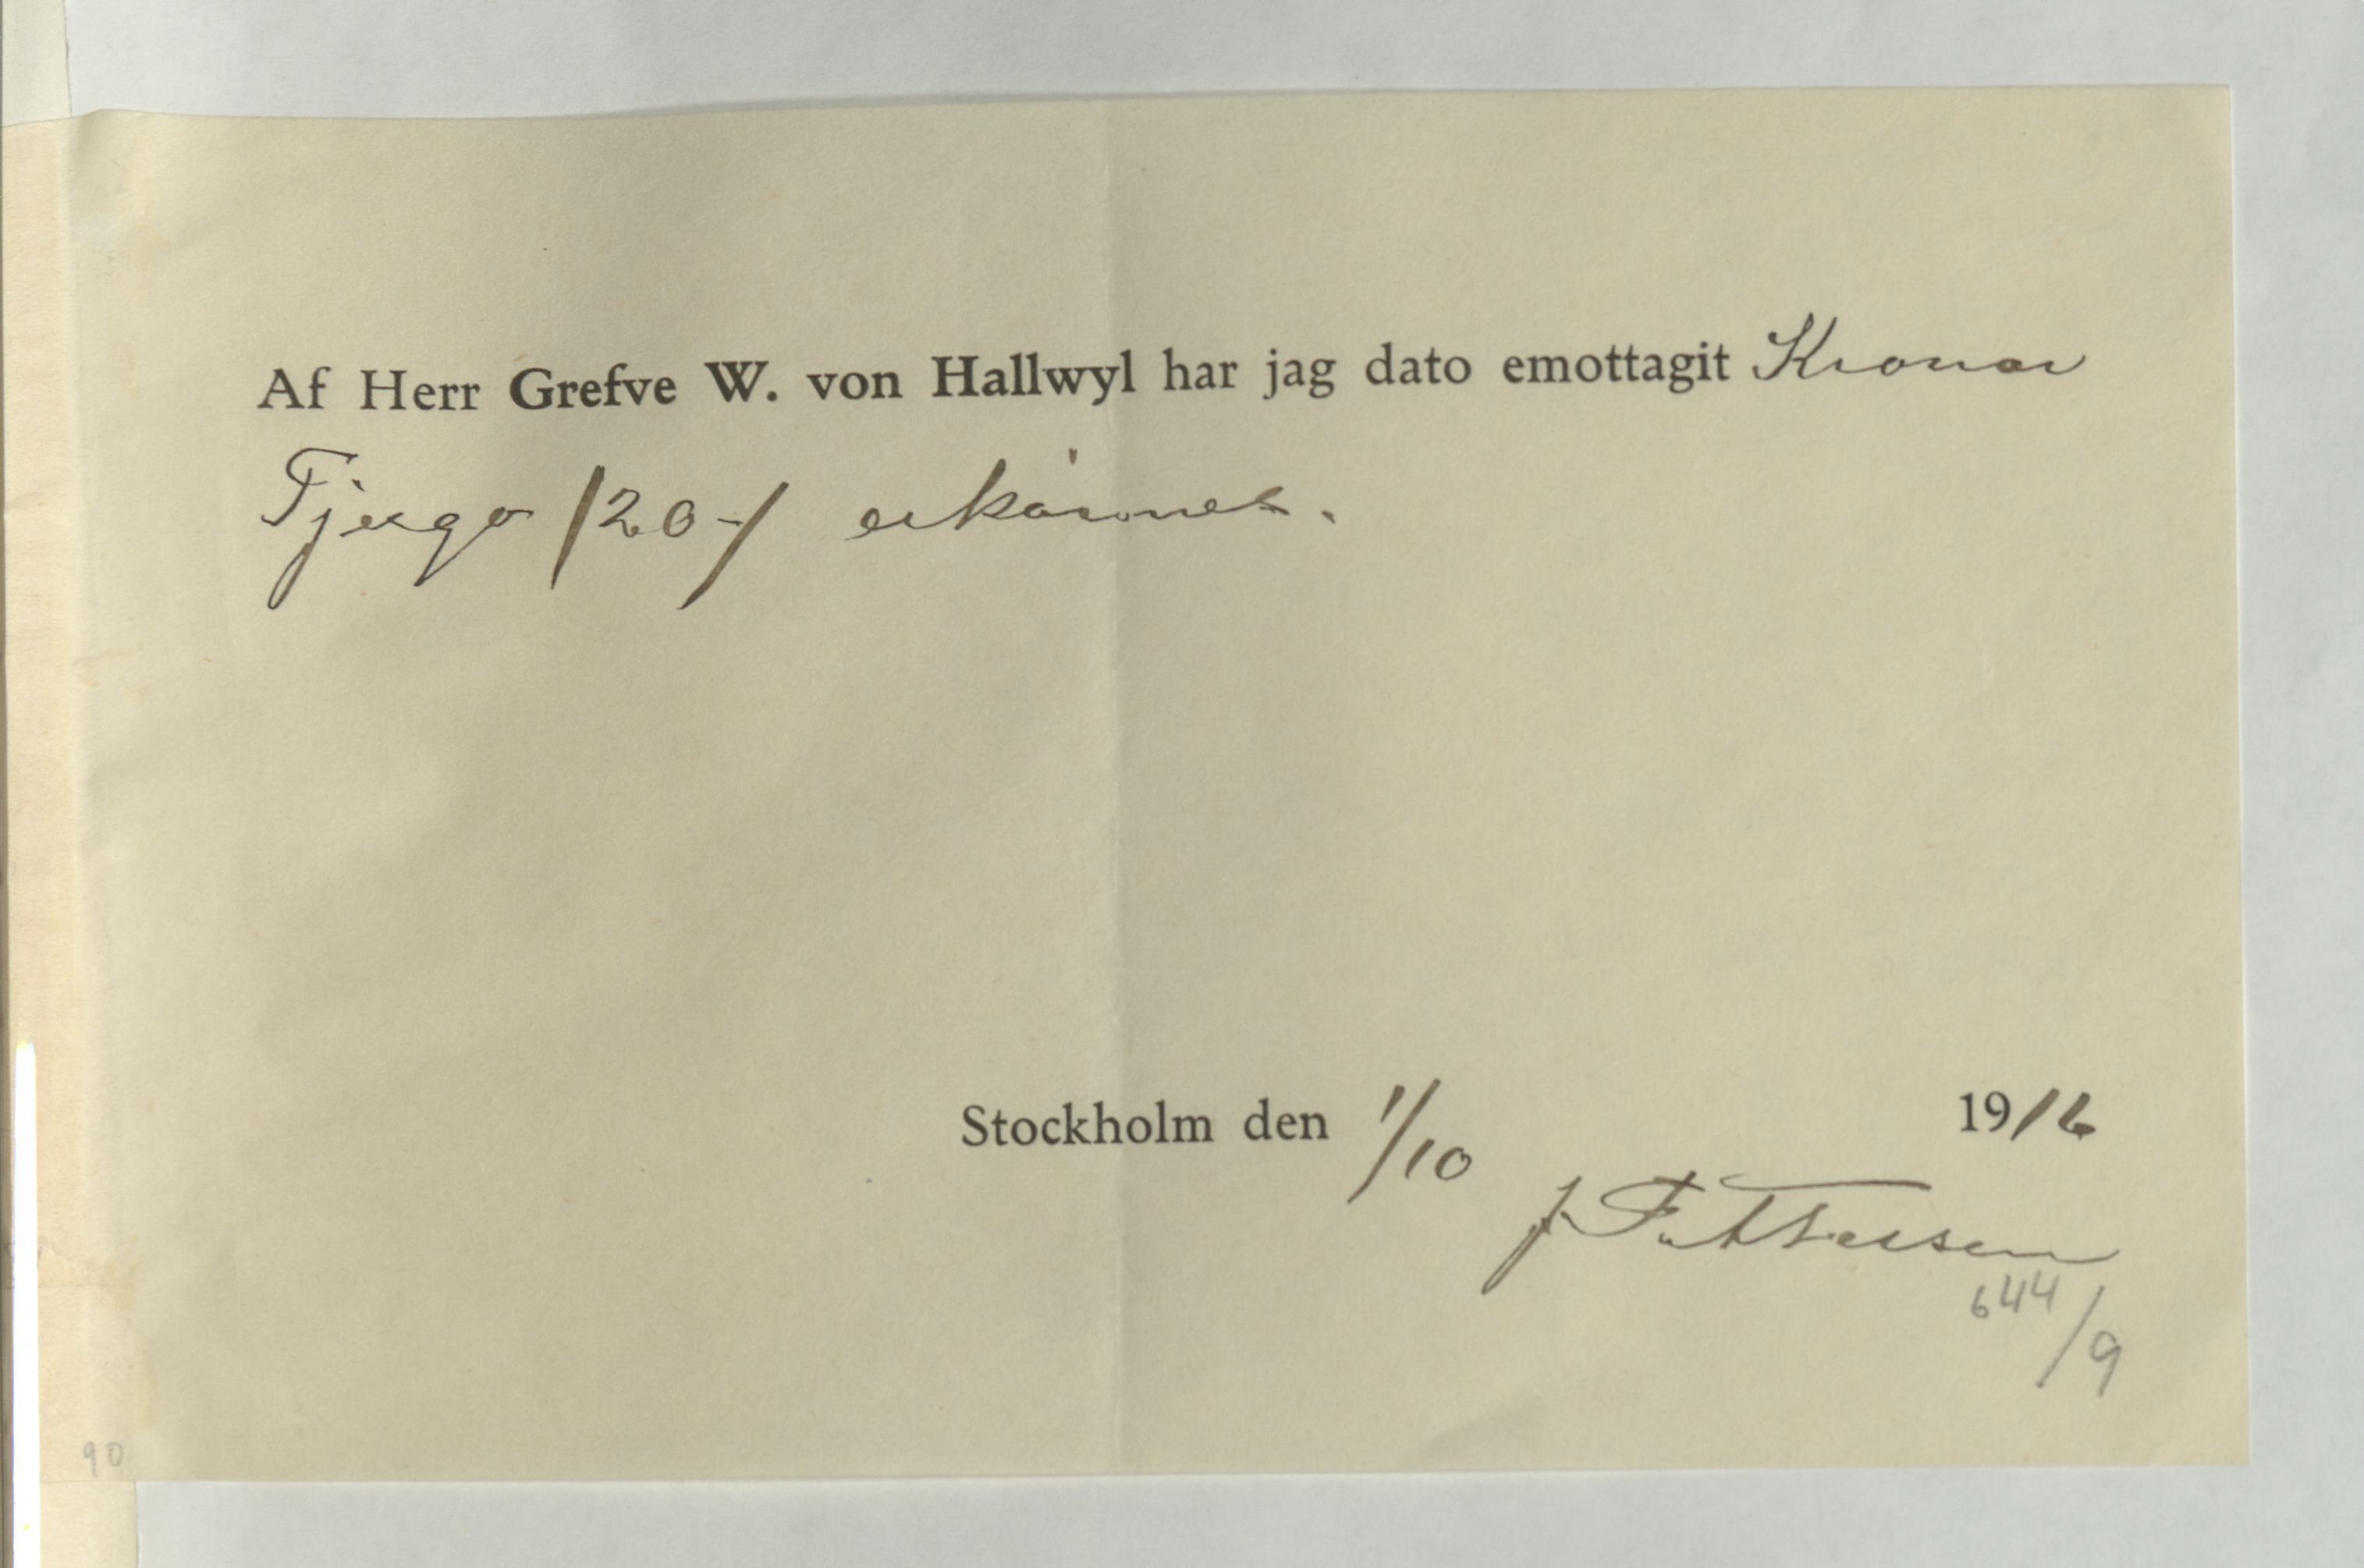 Af Herr Grefve W. von Hallwyl har jag dato emottagit Kronor
Tjugo /20-/ erkännes.
Stockholm den 1/10 1916
J.
644/9
90